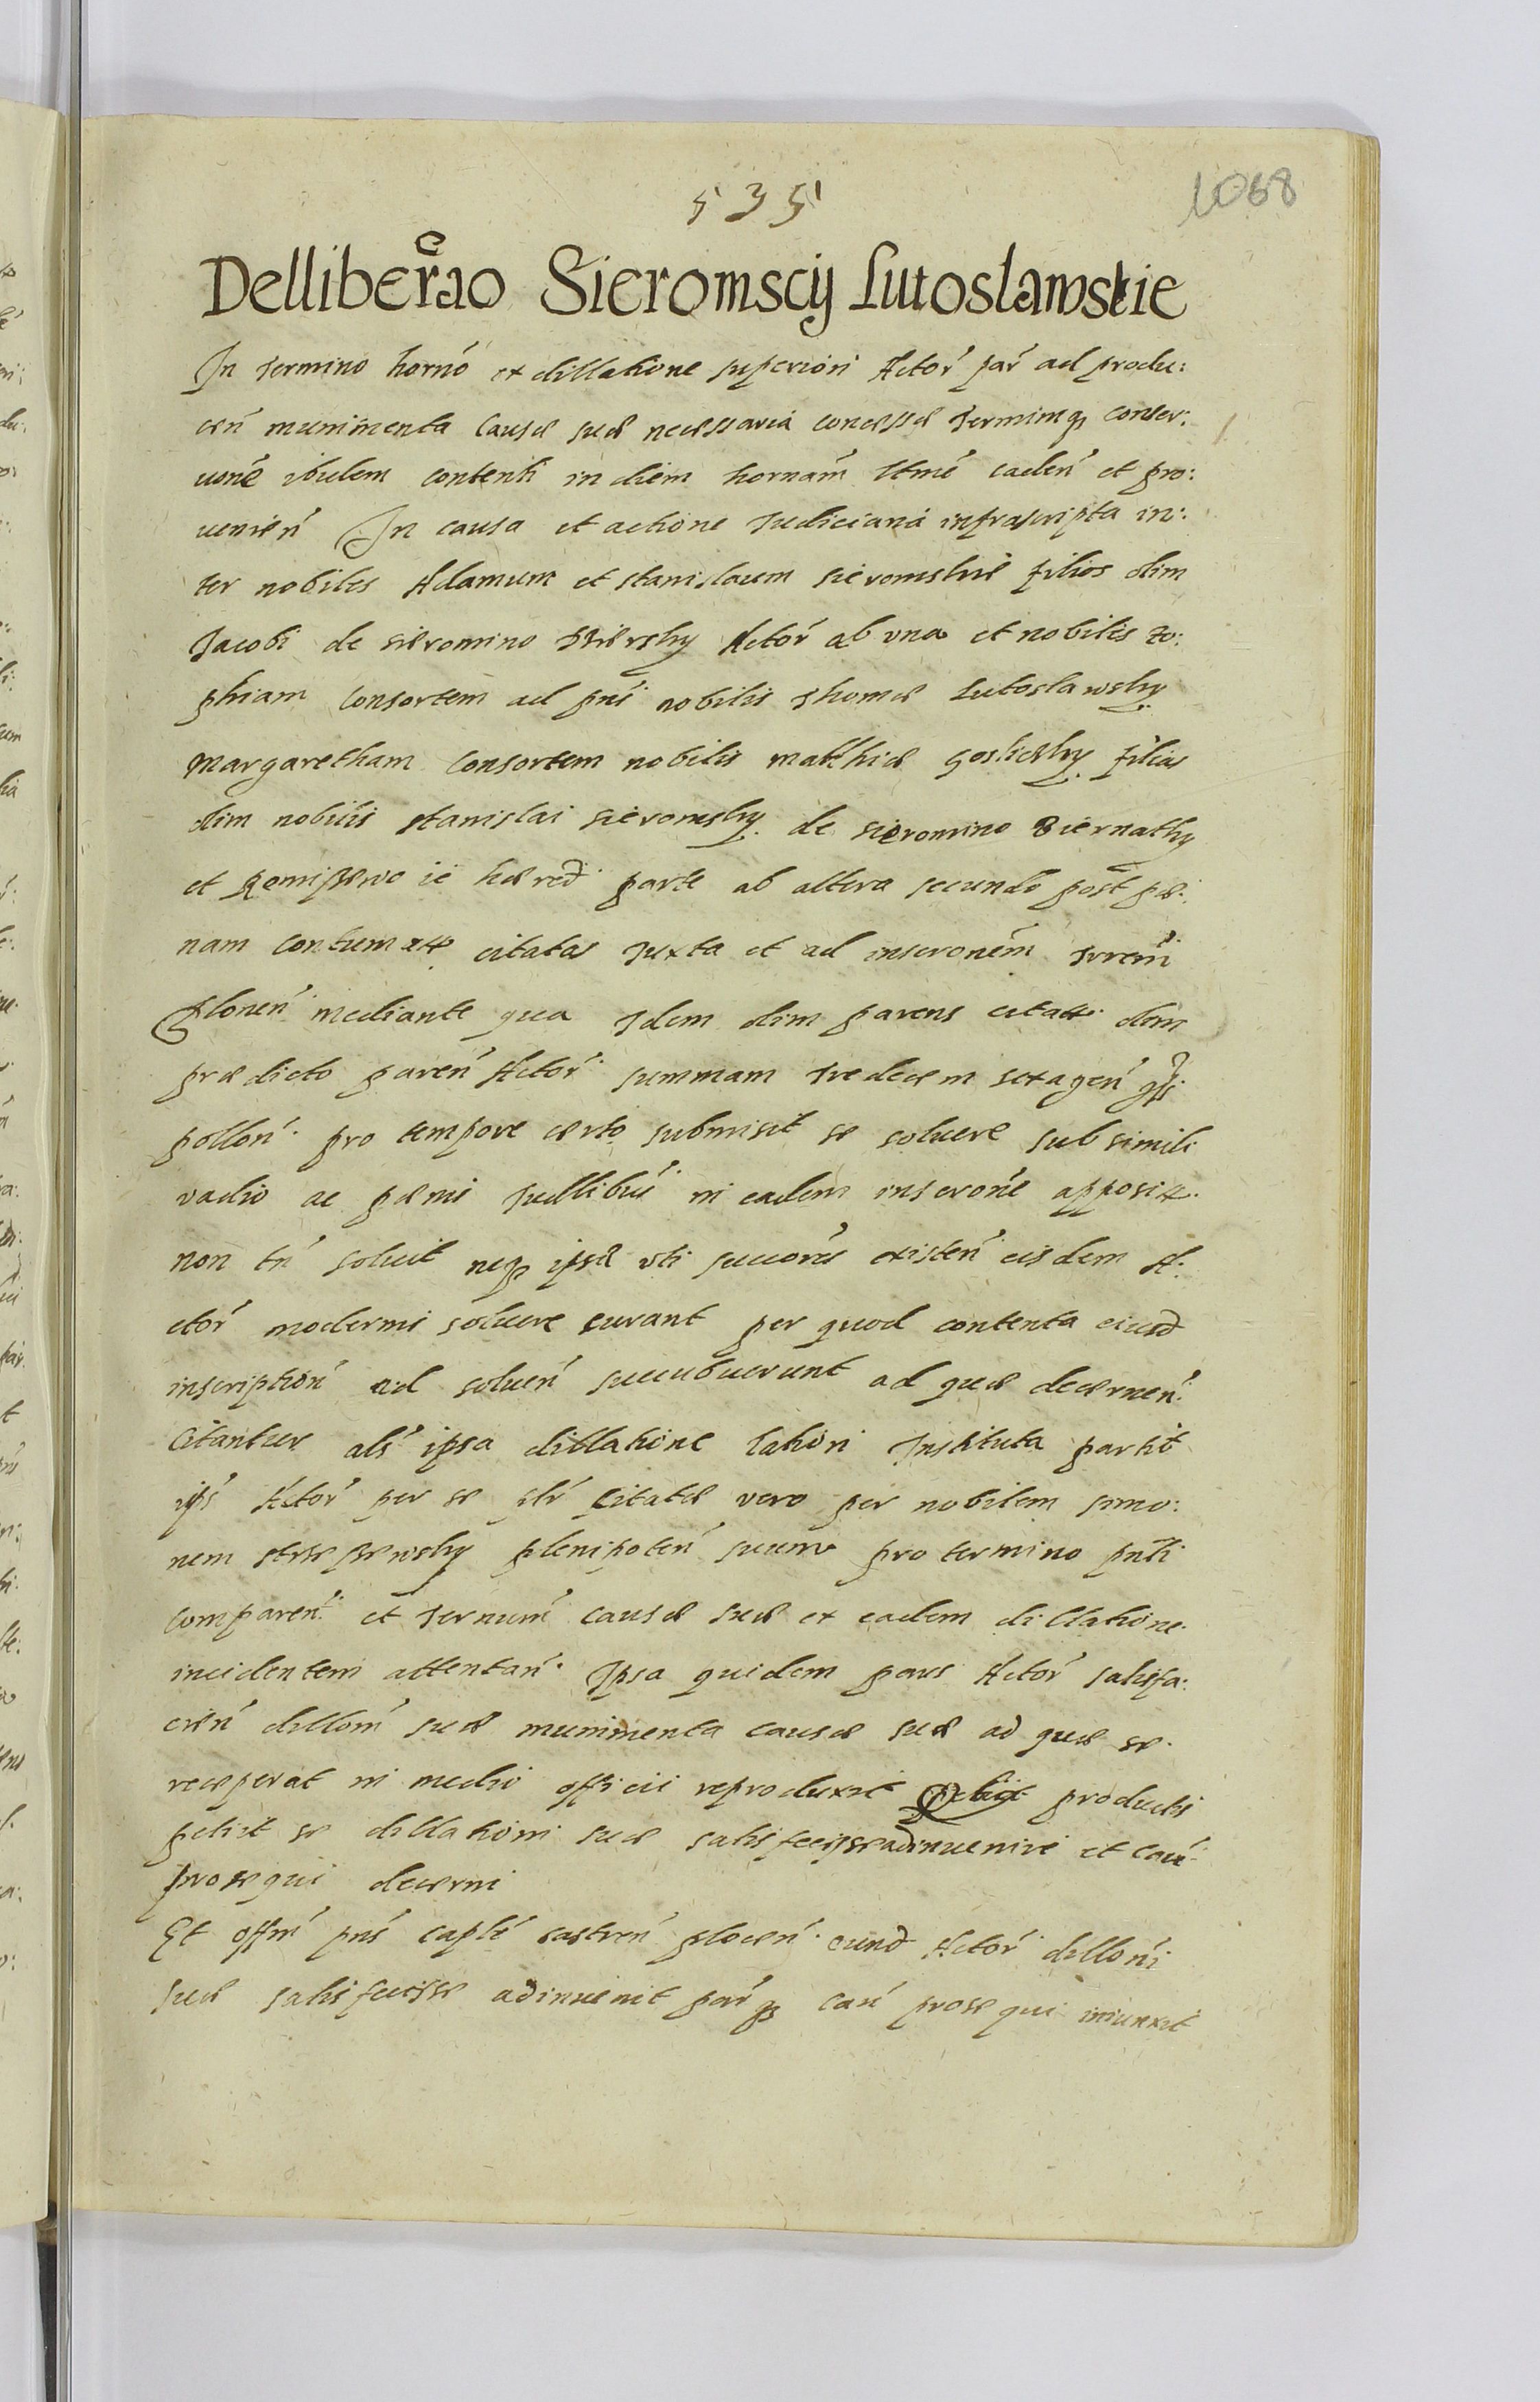 535
1068
Delliberao Sieromscij Lutoslawskie
In termino horno ex dillatione superiori Actor par ad produ:
cen munimenta causæ suæ necessaria concessæ Terminiq conser:
uone ibidem contenti in diem hornam ltme caden et pro:
uenien In causa et actione Judiciaria infrascripta in:
ter nobiles Adamum et Stanislaum Sieromskie filios olim
Jacobi de Sieromino Actor ab vna et nobiles Zo:
phiam consortem ad pns nobilis Thomæ Lutoslawsky
Margaretham consortem nobilis Matthiæ Gosliczky filias
olim nobilis Stanislai Sieromsky de Sieromino Biernathy
et hæred parte ab altera secundo post pæ:
nam contumax citatas Juxta et ad inscronem Trrem
Plonen mediante qua Idem olim parens citatar olim
prædicto paren Actor summam tredecem sexagen
pollon pro tempore certo submisit se soluere sub simili
vadio ac pænis Judlibus in eadem inscrone apposit
non tn soluit neq ipsæ vti succores existen eisdem A:
ctor moderni soluere curant per quod contenta eiusd
inscription ad soluen succubuerunt ad quæ decernen
Citantur als ipsa dillatione lationi Instituta partib
ips Actor per se plr Citatæ vero per nobilem Simo:
nem plenipoten suum pro termino pnti
comparen et Ternum causæ suæ ex eadem dillatione
incidentem attentan Ipsa quidem pars Actor satisfa:
cien dillom suæ munimenta causæ suæ ad quæ se
receperat in medio officii reproduxit productis
petiit se dillationi suæ satisfecisse adinueniri et caus
prosequi decerni
Et offm pns captle castren plocen eund Actor dilloni
suæ satisfecisse adinuenit parq caus prosequi iniunxit